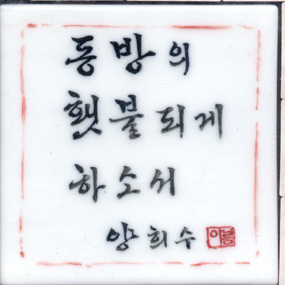 동방의
횃불되게
하소서
양희수